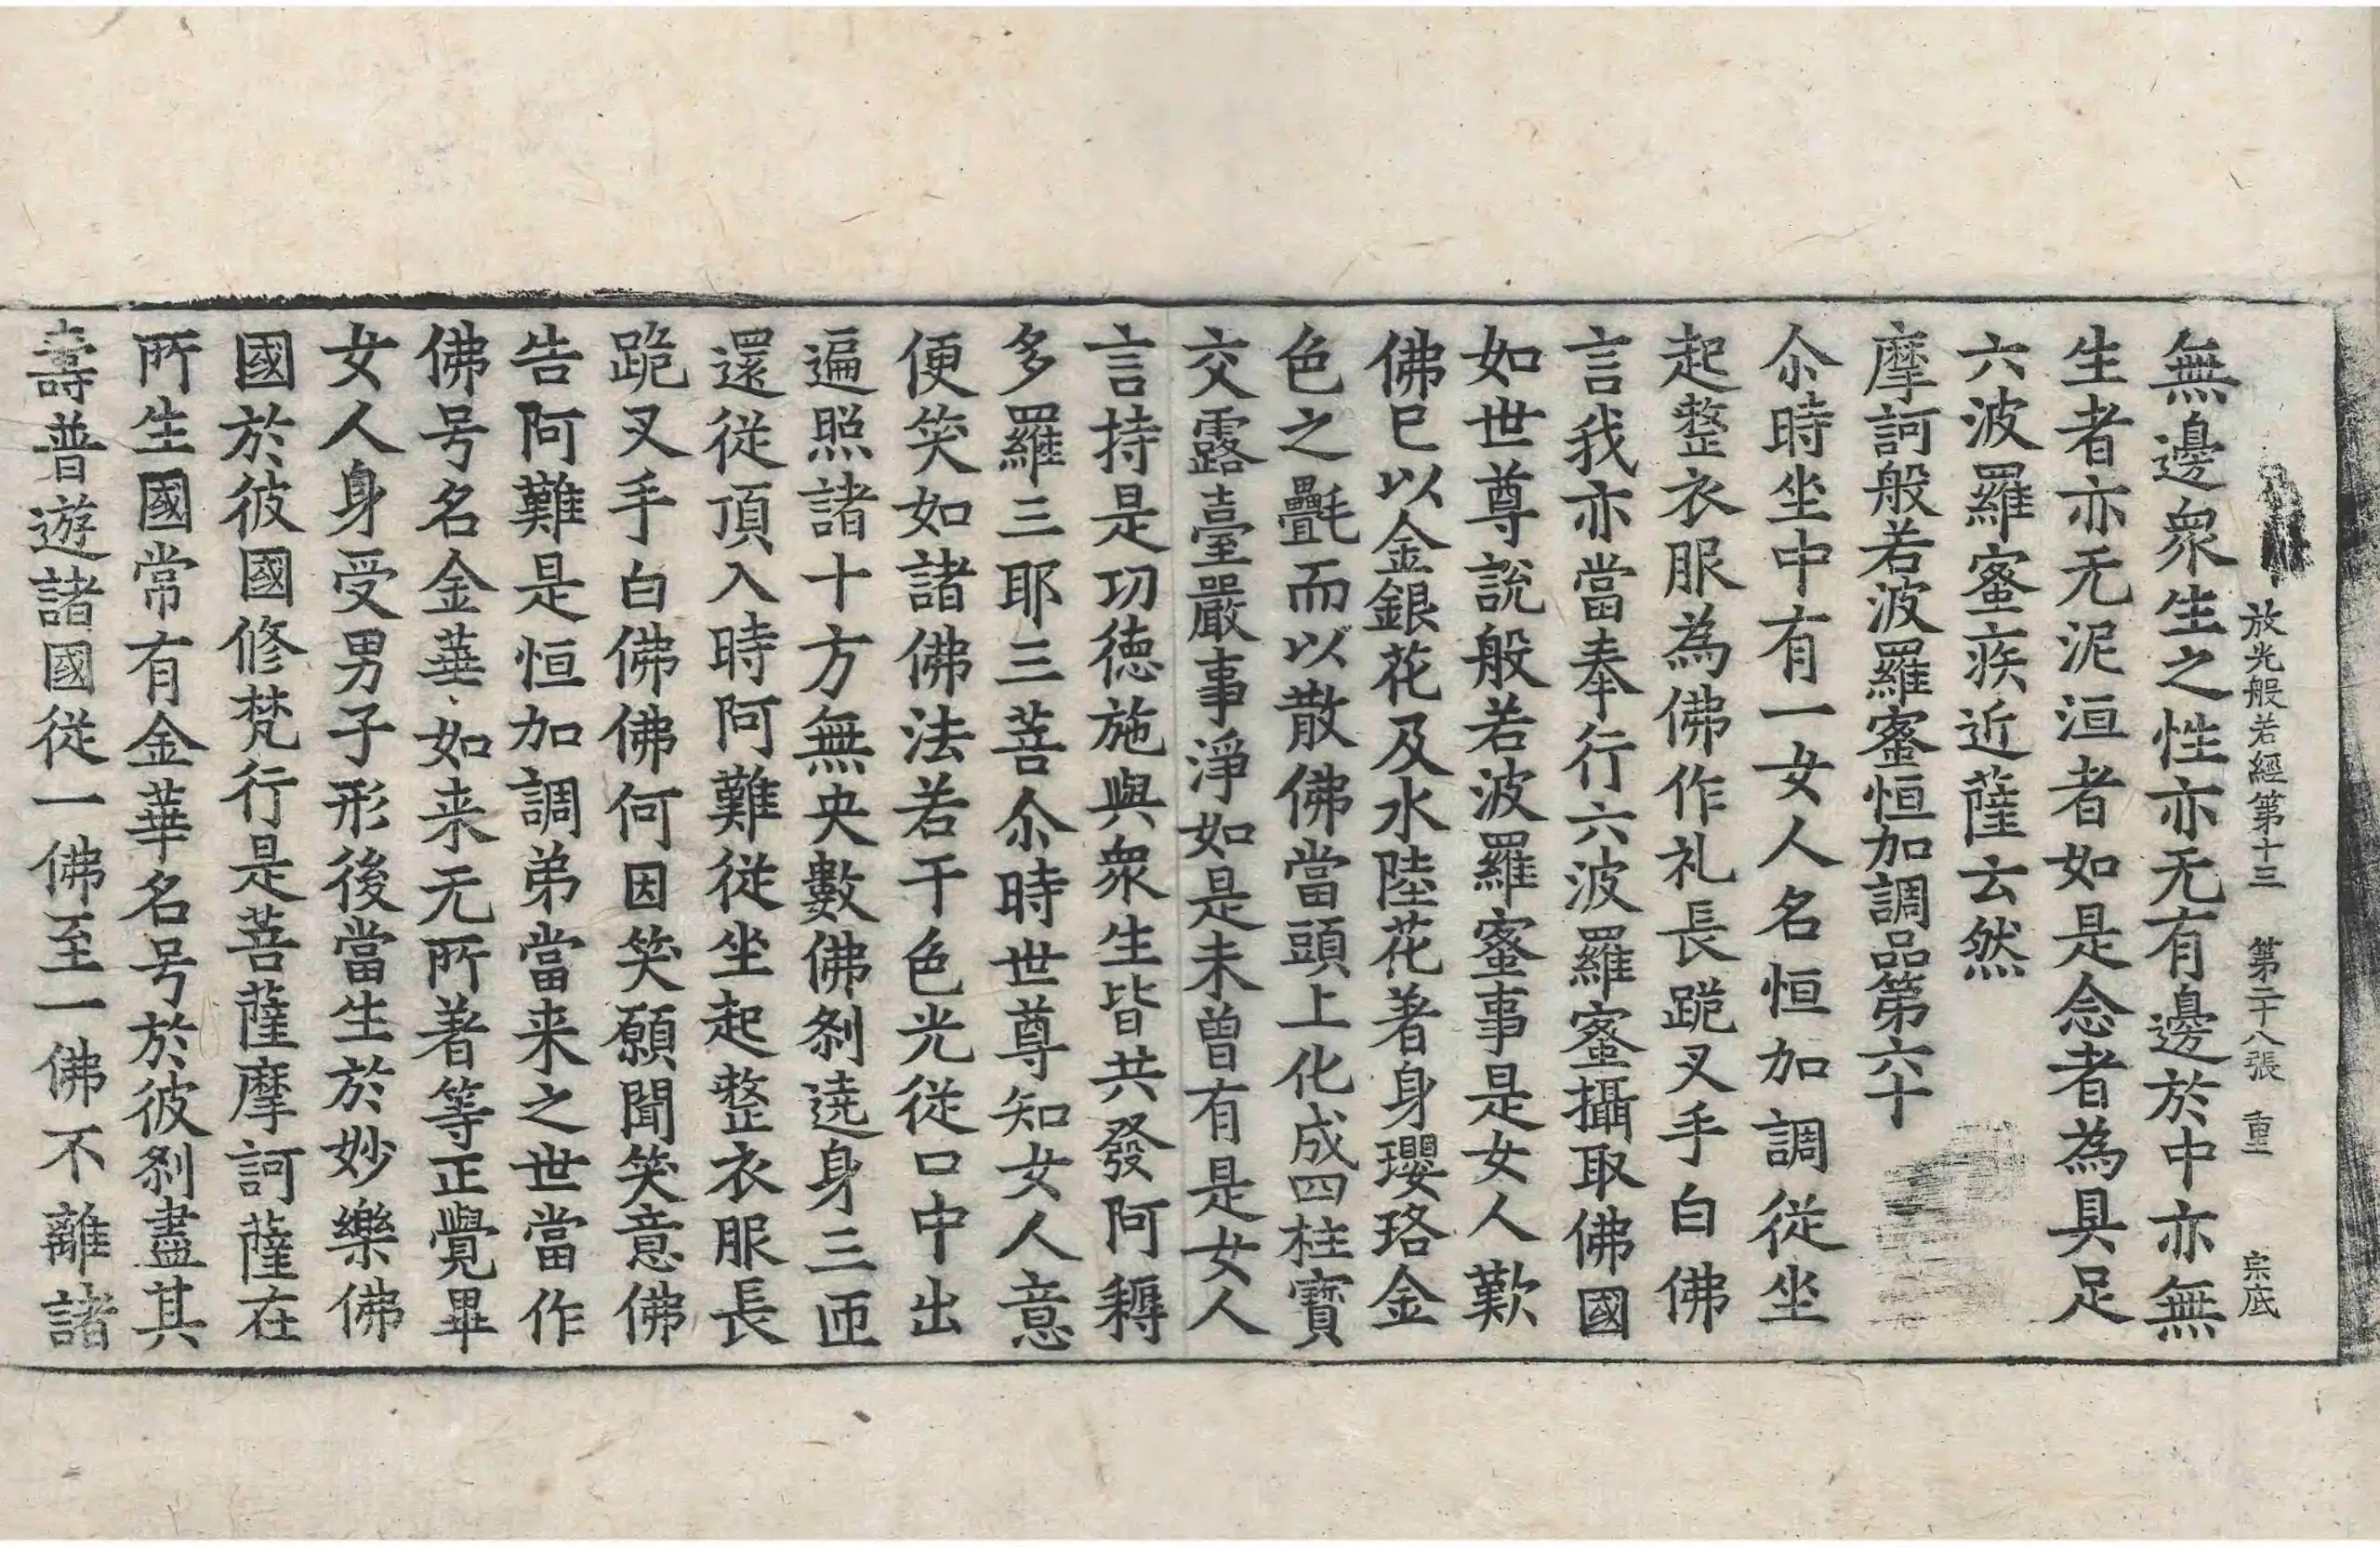 放光般若經第十三　第二十八張　重　宗底
無邊衆生之性亦无有邊於中亦無
生者亦无泥洹者如是念者為具足
六波羅蜜疾近薩云然
摩訶般若波羅蜜恒加調品第六十
尒時坐中有一女人名恒加調從坐
起整衣服為佛作礼長跪叉手白佛
言我亦當奉行六波羅蜜攝取佛國
如世尊說般若波羅蜜事是女人歎
佛已以金銀花及水陸花著身瓔珞金
色之㲲而以散佛當頭上化成四柱寶
交露臺嚴事淨如是未曾有是女人
言持是功德施與衆生皆共發阿耨
多羅三耶三菩尒時世尊知女人意
便笑如諸佛法若干色光從口中出
遍照諸十方無央數佛刹遶身三匝
還從頂入時阿難從坐起整衣服長
跪叉手白佛佛何因笑願聞笑意佛
告阿難是恒加調弟當来之世當作
佛号名金華如来无所著等正覺畢
女人身受男子形後當生於妙樂佛
國於彼國修梵行是菩薩摩訶薩在
所生國常有金華名号於彼刹盡其
壽普遊諸國從一佛至一佛不離諸